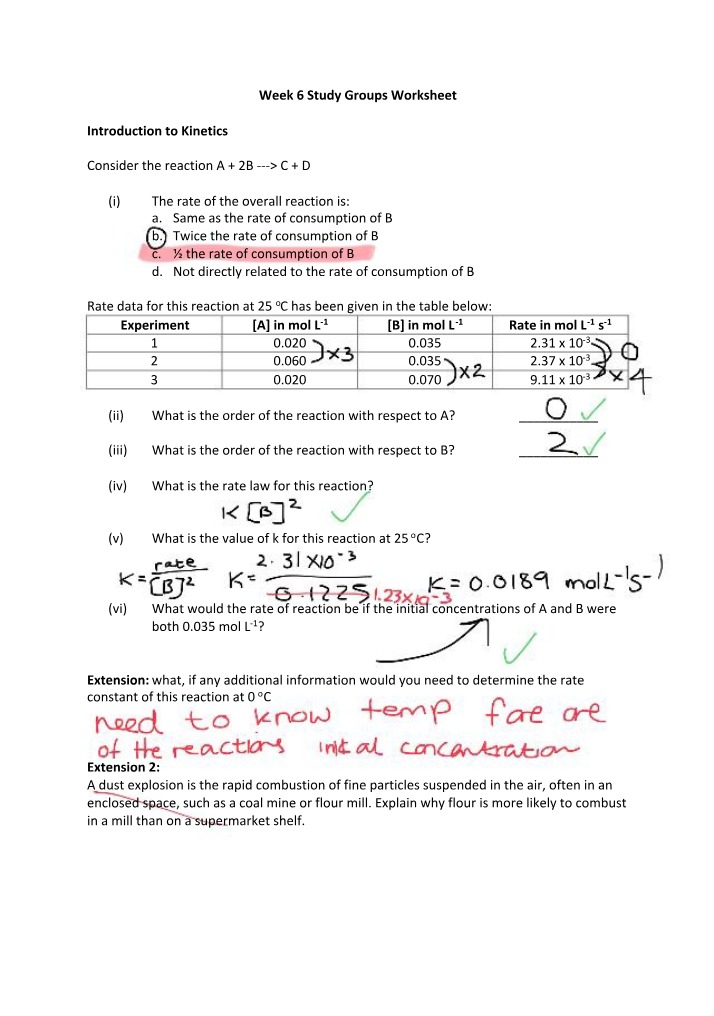 Week 6 Study Groups Worksheet
Introduction to Kinetics
Consider the reaction A + 2B ---> C + D
(i) The rate of the overall reaction is:
a. Same as the rate of consumption of B
b. Twice the rate of consumption of B
c. ½ the rate of consumption of B
d. Not directly related to the rate of consumption of B
Rate data for this reaction at 25 ºC has been given in the table below:
Experiment [A] in mol L-1 [B] in mol L-1 Rate in mol L-1 s-1
1 0.020 0.035 2.31 x 10-3
x3 0
2 0.060 0.035 2.37 x 10-3
x2 x4
3 0.020 0.070 9.11 x 10-3
(ii) What is the order of the reaction with respect to A? 0 ✓
(iii) What is the order of the reaction with respect to B? 2 ✓
(iv) What is the rate law for this reaction?
K [B]² ✓
(v) What is the value of k for this reaction at 25 ºC?
K = rate / [B]² K = 2.31 x10-3 / 0.1225 1.23x10-3 K = 0.0189 molL-1s-1
(vi) What would the rate of reaction be if the initial concentrations of A and B were
both 0.035 mol L-1?
✓
Extension: what, if any additional information would you need to determine the rate
constant of this reaction at 0 ºC
need to know temp
of the reactions initial concentration
Extension 2:
A dust explosion is the rapid combustion of fine particles suspended in the air, often in an
enclosed space, such as a coal mine or flour mill. Explain why flour is more likely to combust
in a mill than on a supermarket shelf.